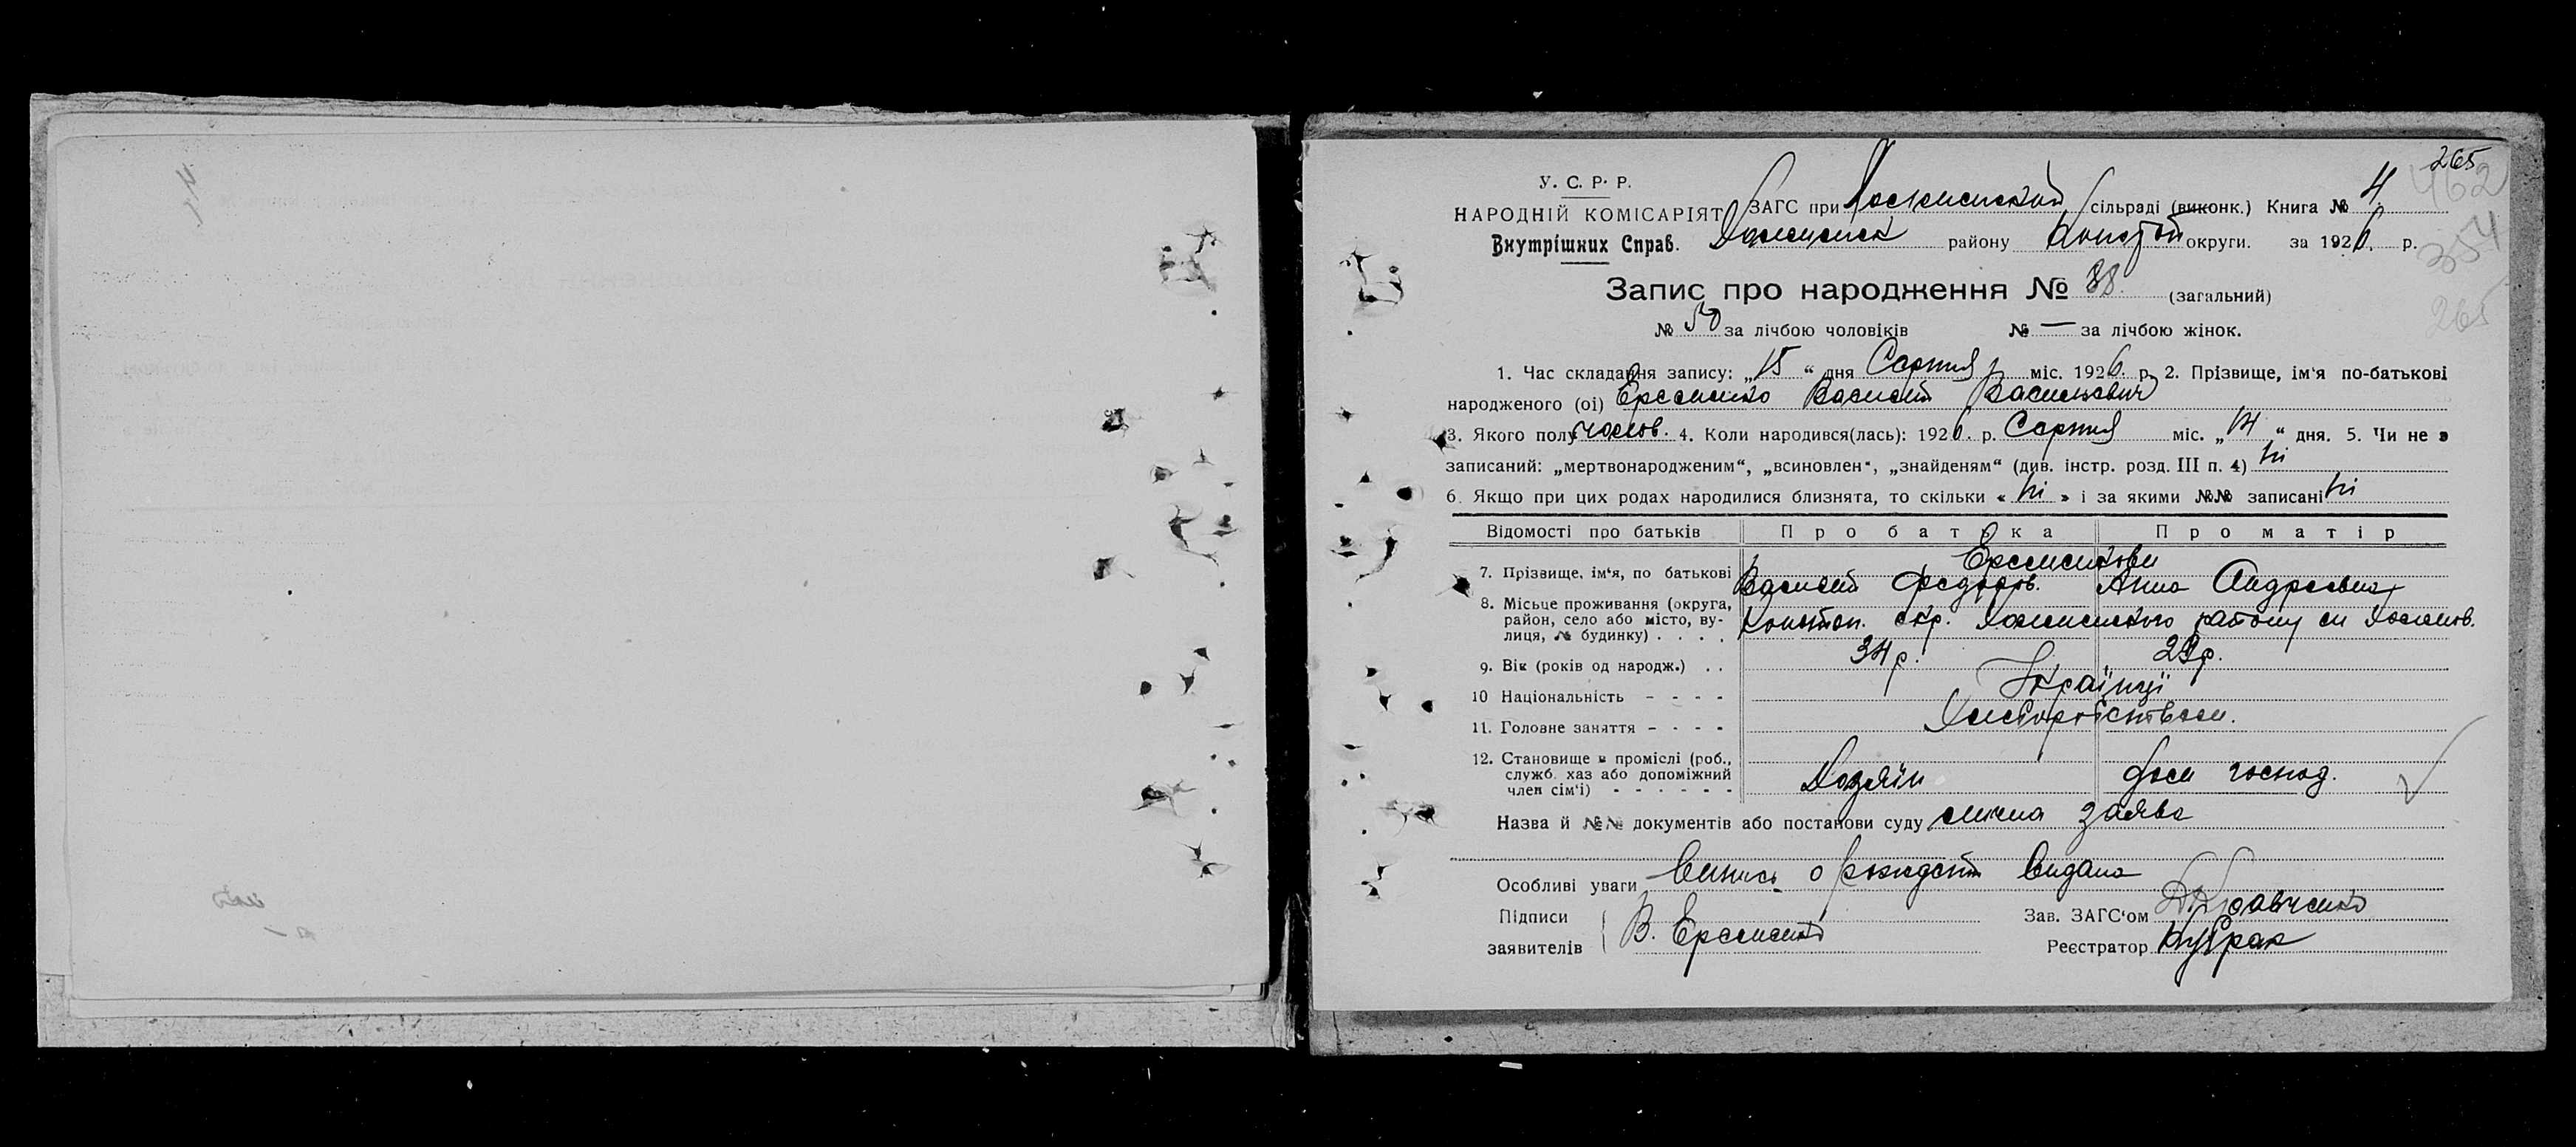 265
462
354
265
У. С. Р. Р.
НАРОДНІЙ КОМІСАРІЯТ
Внутрішних Справ.
ЗАГС при сільраді (виконк.) Книга № 4
району Конотоп округи. за 1926. р.
Запис про народження № 88. (загальний)
№ 50 за лічбою чоловіків № — за лічбою жінок.
1. Час складання запису: „15“ дня Серпня міс. 1926. р. 2. Прізвище, ім‘я по-батькові
народженого (ої) Єременко Василий Васильевич
3. Якого полу чолов. 4. Коли народився(лась): 1926. р. Серпня міс. „14“ дня. 5. Чи не є
записаний: „мертвонародженим“, „всиновлен“, „знайденям“ (див. інстр. розд. III п. 4) ні
6. Якщо при цих родах народилися близнята, то скільки « ні » і за якими №№ записані ні
Відомості про батьків Про батька Про матір
7. Прізвище, ім‘я, по батькові Єременкови
Василий Федоров. Анна Андреевна
8. Місьце проживання (округа,
район, село або місто, ву-
лиця, № будинку) . . . . Конотоп. окр. району
9. Вік (років од народж.) . . 34 р. 29 р.
10 Національність - - - - Українці
11. Головне заняття - - - - Хліборобством.
12. Становище в промислі (роб.,
служб. хаз або допоміжний
член сім‘ї) - - - - - - Хозяїн дом господ.
Назва й №№ документів або постанови суду устна заява
Особливі уваги Випись о рождении видана
Підписи
заявителів В. Єременко
Зав. ЗАГС‘ом Кравченко
Реєстратор